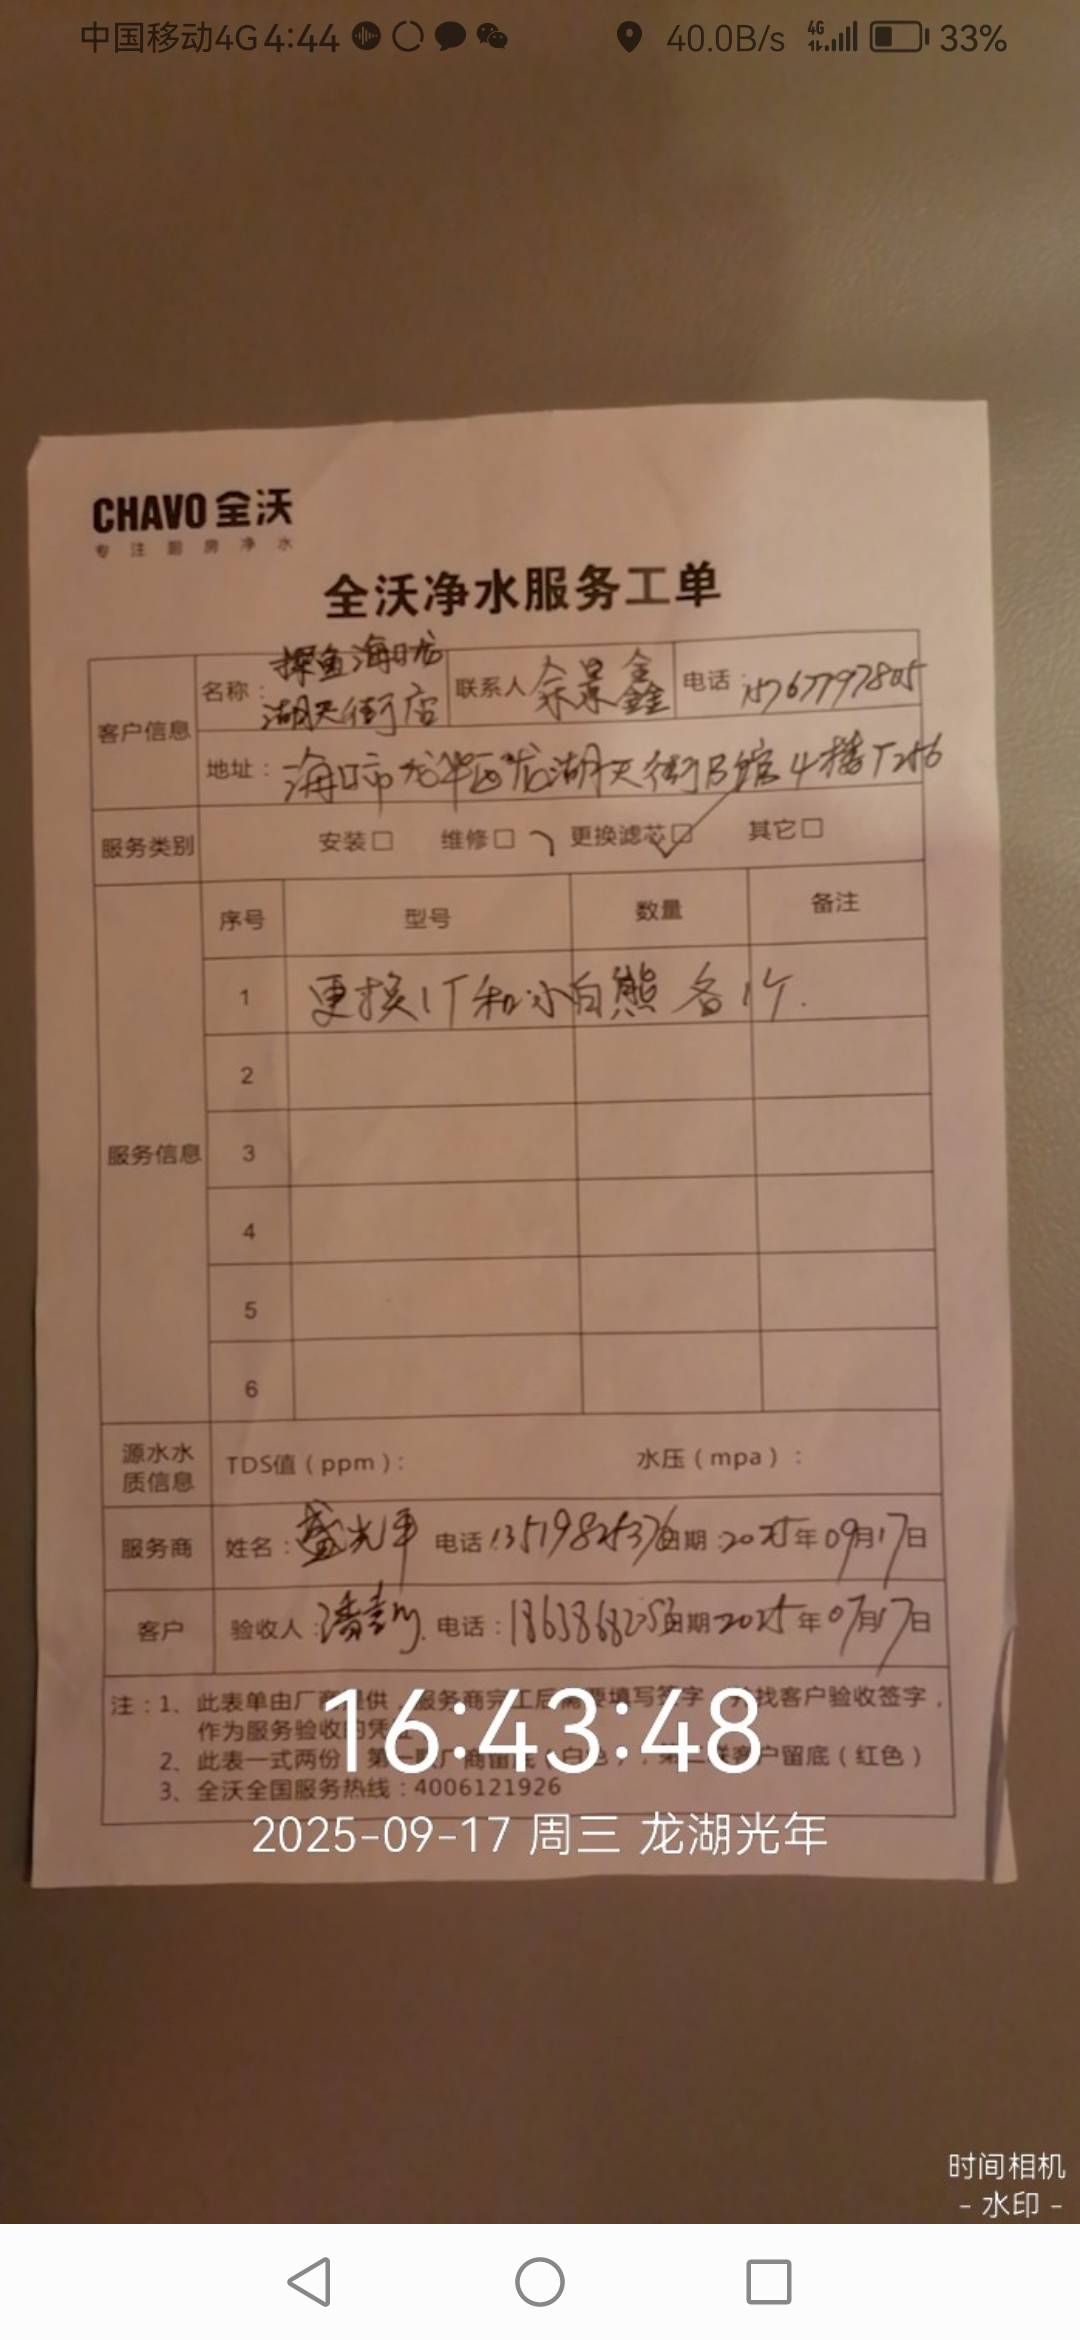 中国移动4G 4:44 40.0B/s 4G 33%
CHAVO 全沃
专注厨房净水
全沃净水服务工单
客户信息
名称：探鱼海口龙湖天街店 联系人 余景鑫 电话：15767797805
地址：海口市龙华区龙湖天街B馆4楼
服务类别 安装□ 维修□ 更换滤芯□ 其它□
服务信息
序号 型号 数量 备注
1 更换1T和小白熊各1个.
2
3
4
5
6
源水水质信息 TDS值（ppm）： 水压（mpa）：
服务商 姓名：盛光平 电话：13519825376 日期：2025年09月17日
客户 验收人：潘 电话： 日期 2025年07月17日
注：1、此表单由厂商提供，服务商完工后需要填写签字，并找客户验收签字，
作为服务验收的凭证
2、此表一式两份，第一联厂商留底（白色），第二联客户留底（红色）
3、全沃全国服务热线：4006121926
16:43:48
2025-09-17 周三 龙湖光年
时间相机
- 水印 -